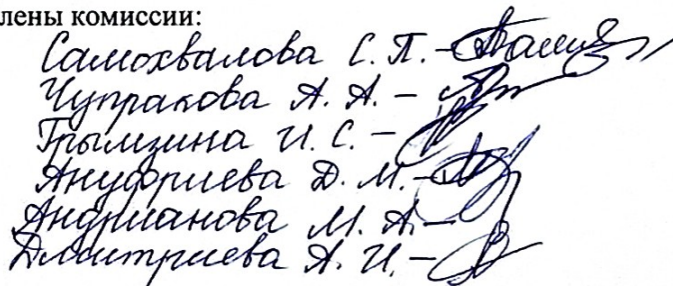 лены комиссии:
Самохвалова С. П. –
Чупракова А. А. –
Грымзина И. С. –
Ануфриева Д. М. –
Андрианова М. А. –
Дмитриева А. И. –